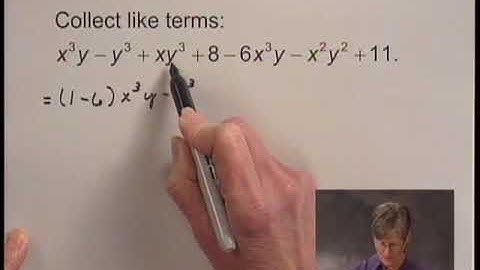 Collect like terms:
x³y − y³ + xy³ + 8 − 6x³y − x²y² + 11.
= (1−6) x³y − ³